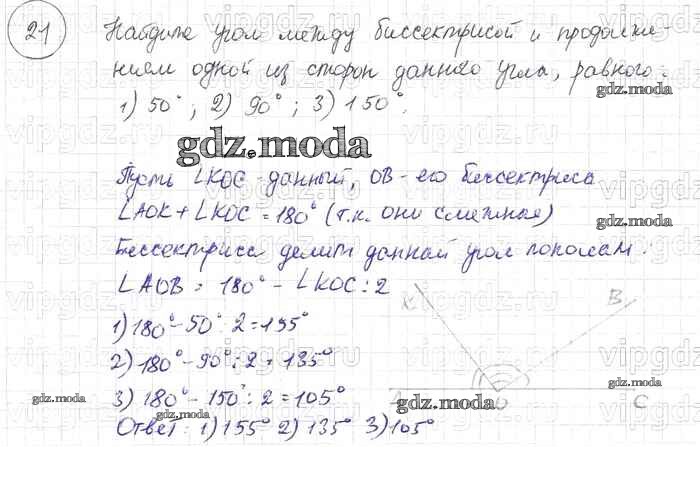 21
Найдите угол между биссектрисой и продолже-
нием одной из сторон данного угла, равного:
1) 50°; 2) 90°; 3) 150°.
gdz.moda
Пусть ∠KOC - данный, OB - его биссектриса
∠AOK + ∠KOC = 180° (т.к. они смежные)
Биссектриса делит данный угол пополам:
∠AOB = 180° - ∠KOC : 2
1) 180° - 50° : 2 = 155°
2) 180° - 90° : 2 = 135°
3) 180° - 150° : 2 = 105°
Ответ: 1) 155° 2) 135° 3) 105°
K
B
A
O
C
gdz.moda
gdz.moda
gdz.moda
gdz.moda
gdz.moda
gdz.moda
vipgdz.ru